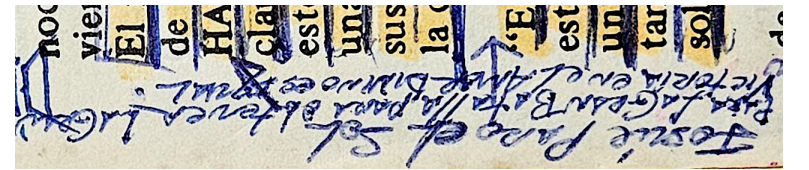 noc
vien
El
de
HA
cla
est
una
sus
la
“E
est
un
tar
sol
Josué Paro el Sol
Para la Gran Batalla, para obtener la Gran
Victoria en el Amor Divino es